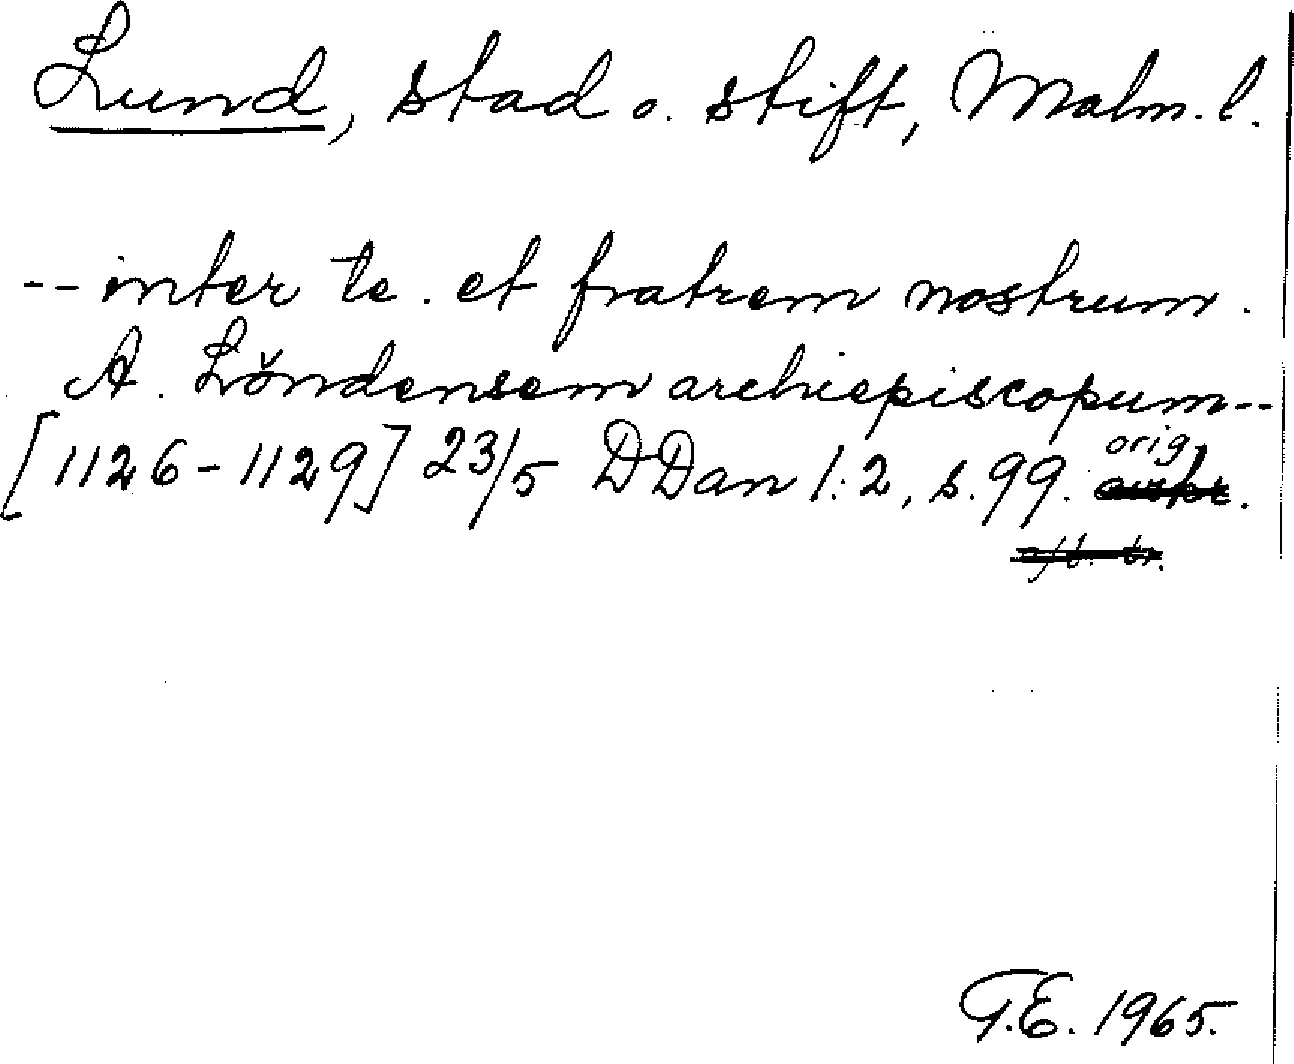 Lund, stad o. stift, Malm. l.
-- inter te. et fratrem nostrum.
A. Lŏndensem archiepiscopum --
[1126-1129] 23/5 DDan 1:2, s. 99. orig.
T.E. 1965.